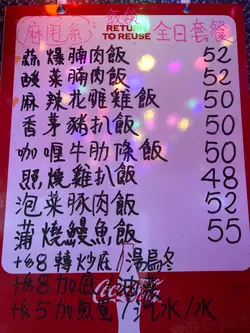 飯類
RETURN
TO REUSE
全日套餐
蒜爆腩肉飯 52
酸菜腩肉飯 52
麻辣花雕雞飯 50
香茅豬扒飯 50
咖喱牛肋條飯 50
照燒雞扒飯 48
泡菜豚肉飯 52
蒲燒鰻魚飯 55
+$8 轉炒底 湯烏冬
+$8 加
+$5 加魚蛋 / 水